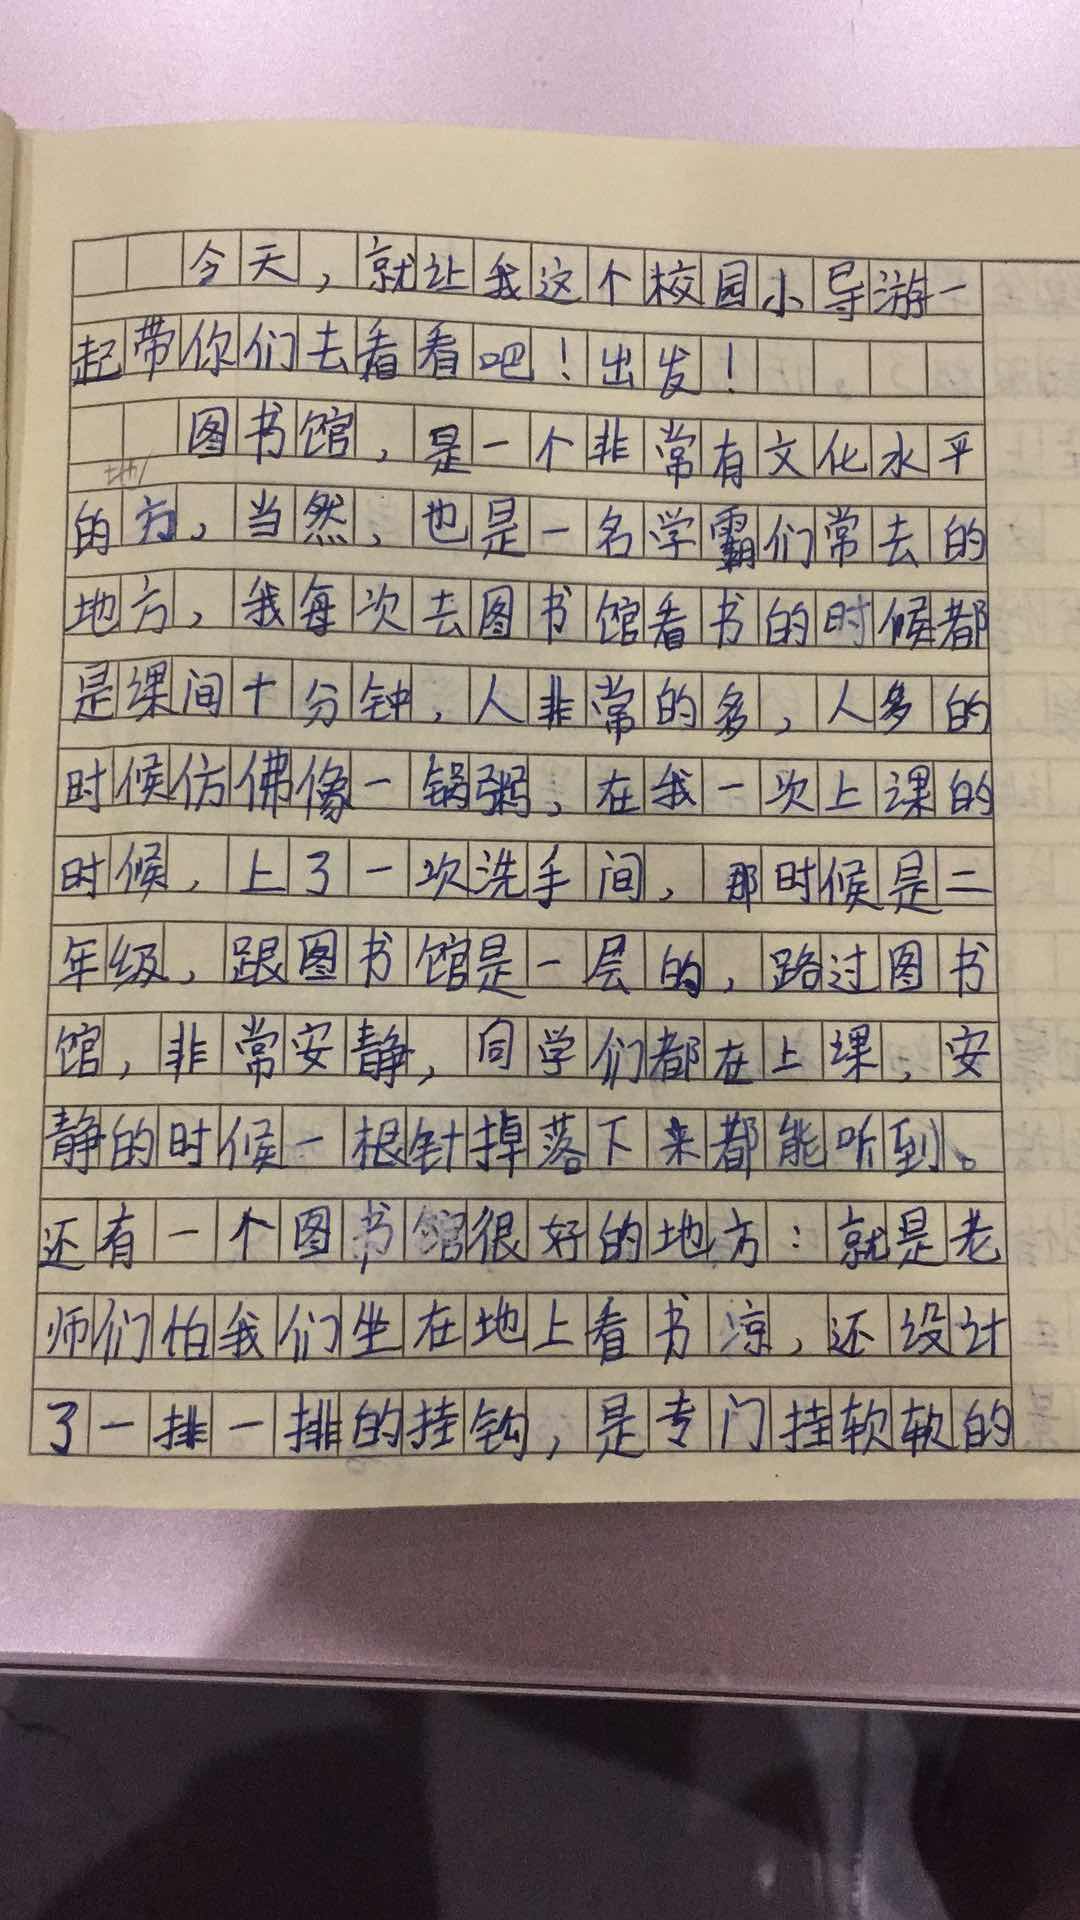 今天，就让我这个校园小导游一
起带你们去看看吧！出发！
图书馆，是一个非常有文化水平
的地方，当然，也是一名学霸们常去的
地方，我每次去图书馆看书的时候都
是课间十分钟，人非常的多，人多的
时候仿佛像一锅粥，在我一次上课的
时候，上了一次洗手间，那时候是二
年级，跟图书馆是一层的，路过图书
馆，非常安静，同学们都在上课，安
静的时候一根针掉落下来都能听到。
还有一个图书馆很好的地方：就是老
师们怕我们坐在地上看书凉，还设计
了一排一排的挂钩，是专门挂软软的